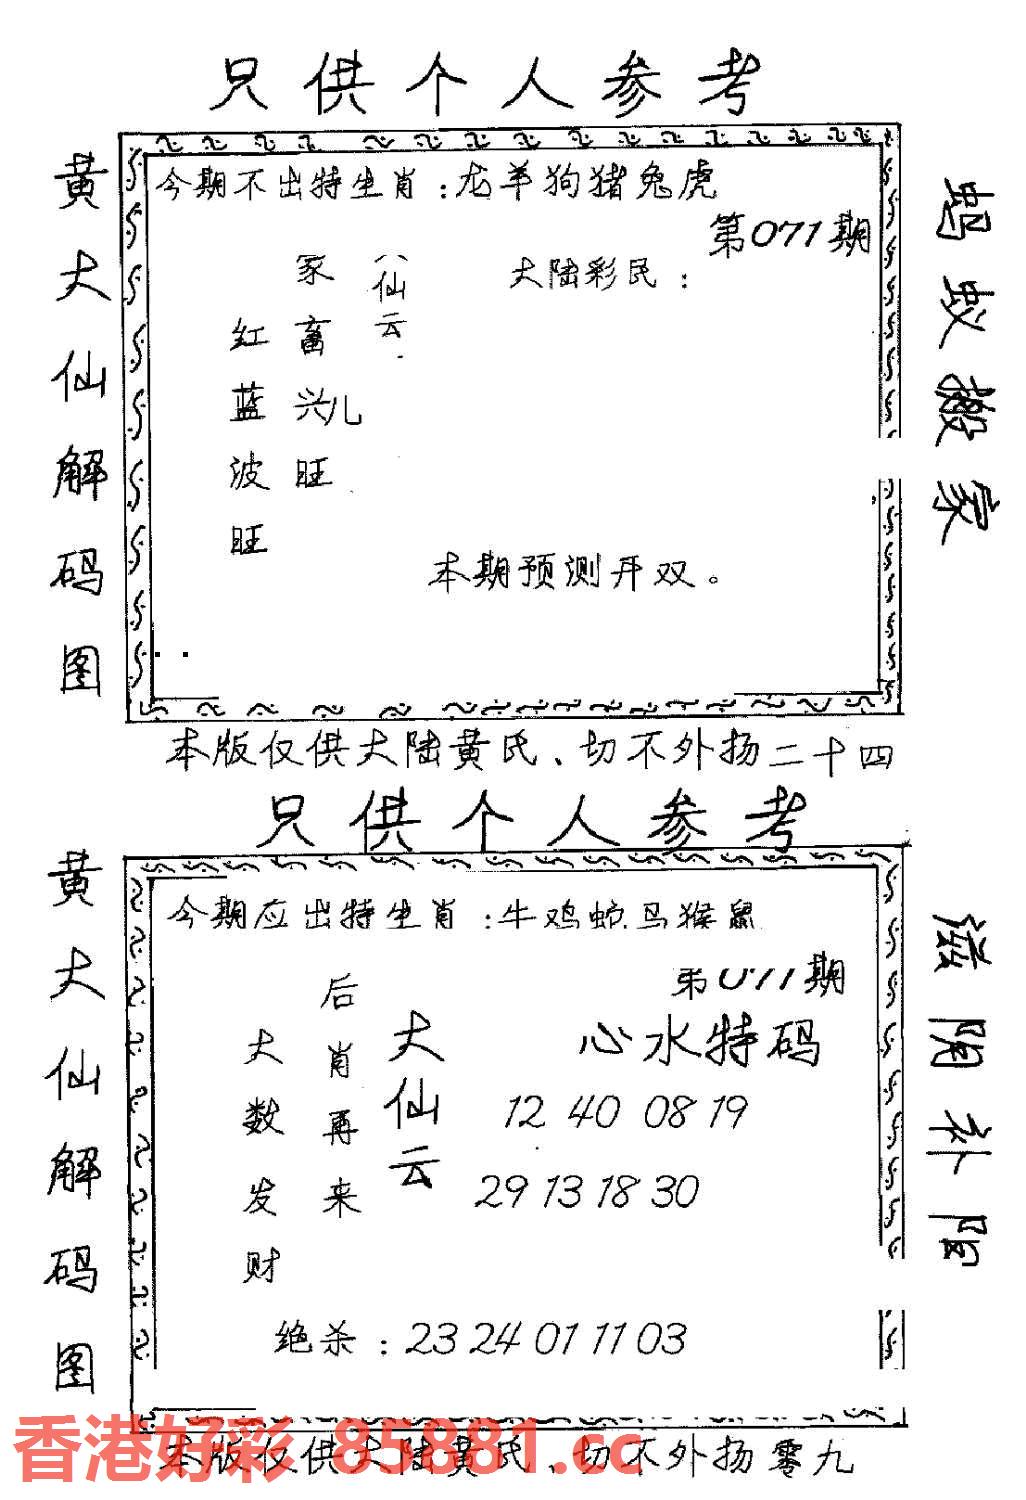 只供个人参考
黄大仙解码图
今期不出特生肖：龙羊狗猪兔虎
第071期
大陆彩民：
八仙云
家畜兴旺
儿
红蓝波旺
本期预测开双。
蚂蚁搬家
本版仅供大陆黄民、切不外扬二十四
只供个人参考
黄大仙解码图
今期应出特生肖：牛鸡蛇马猴鼠
第071期
心水特码
大仙云
后肖再来
大数发财
12 40 08 19
29 13 18 30
绝杀：23 24 01 11 03
滋阴补阳
本版仅供大陆黄民、切不外扬零九
香港好彩 85881.cc